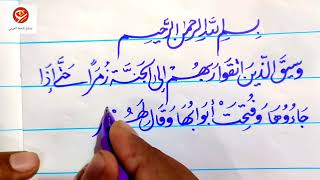 بِسْمِ اللَّهِ الرَّحْمَنِ الرَّحِيمِ
وَسِيقَ الَّذِينَ اتَّقَوْا رَبَّهُمْ إِلَى الْجَنَّةِ زُمَرًا حَتَّى إِذَا
جَاءُوهَا وَفُتِحَتْ أَبْوَابُهَا وَقَالَ لَهُمْ